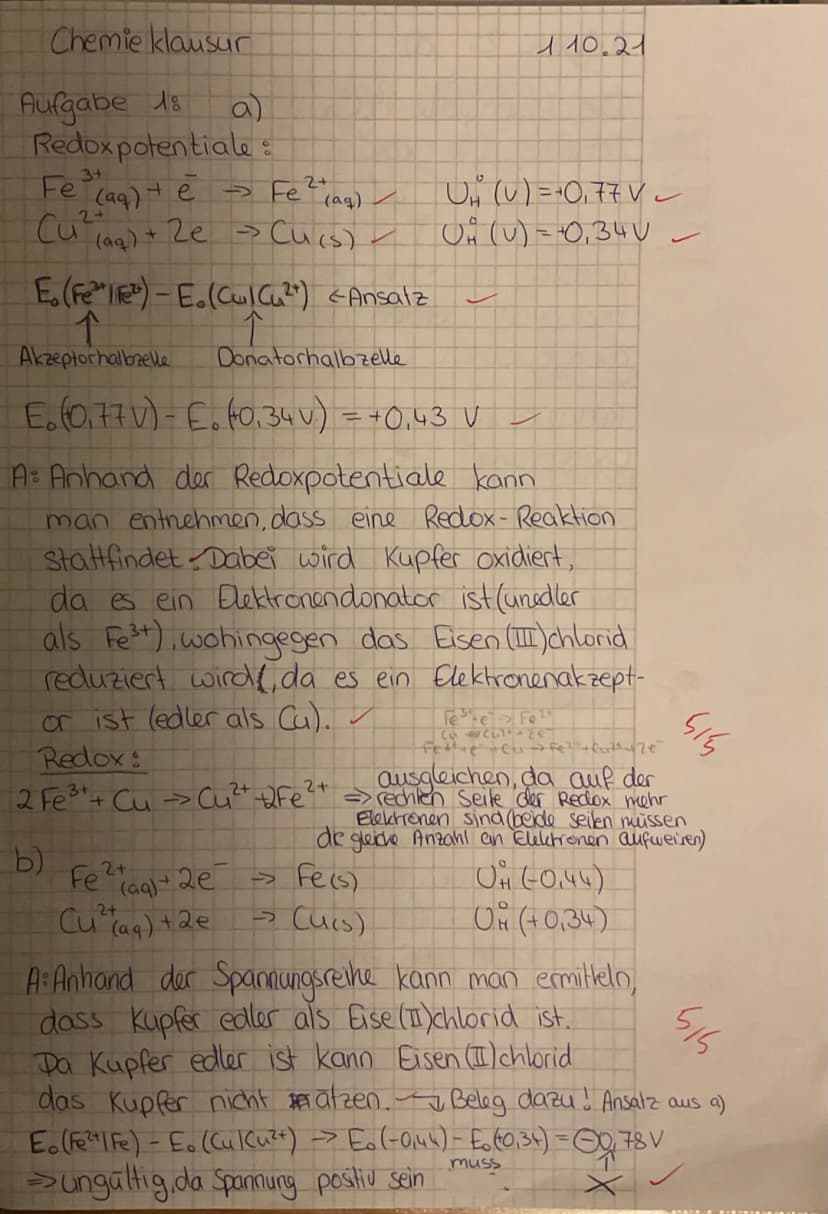 Chemieklausur 1 10.21
Aufgabe 1: a)
Redoxpotentiale:
Fe³⁺(aq) + e⁻ → Fe²⁺(aq) U°H (V) = +0,77 V
Cu²⁺(aq) + 2e → Cu(s) U°H (V) = +0,34 V
E₀(Fe³⁺|Fe²⁺) – E₀(Cu|Cu²⁺) ← Ansatz
Akzeptorhalbzelle Donatorhalbzelle
E₀(+0,77V) – E₀(+0,34V) = +0,43 V
A: Anhand der Redoxpotentiale kann
man entnehmen, dass eine Redox-Reaktion
stattfindet. Dabei wird Kupfer oxidiert,
da es ein Elektronendonator ist (unedler
als Fe³⁺), wohingegen das Eisen(III)chlorid
reduziert wird, da es ein Elektronenakzept-
or ist (edler als Cu).
Fe³⁺+e⁻ → Fe²⁺
Cu → Cu²⁺+2e⁻
Fe³⁺+e⁻+Cu → Fe²⁺+Cu²⁺+2e⁻
5/5
Redox:
2Fe³⁺ + Cu → Cu²⁺ + 2Fe²⁺ ⇒ ausgleichen, da auf der
rechten Seite der Redox mehr
Elektronen sind (beide seiten müssen
die gleiche Anzahl an Elektronen aufweisen)
b) Fe²⁺(aq) + 2e⁻ → Fe(s) U°H (-0,44)
Cu²⁺(aq) + 2e → Cu(s) U°H (+0,34)
A: Anhand der Spannungsreihe kann man ermitteln,
dass Kupfer edler als Eise(II)chlorid ist.
5/5
Da Kupfer edler ist kann Eisen(II)chlorid
das Kupfer nicht ätzen. → Beleg dazu! Ansatz aus a)
E₀(Fe²⁺|Fe) – E₀(Cu|Cu²⁺) → E₀(-0,44) – E₀(+0,34) = -0,78V
⇒ ungültig, da Spannung positiv sein muss.